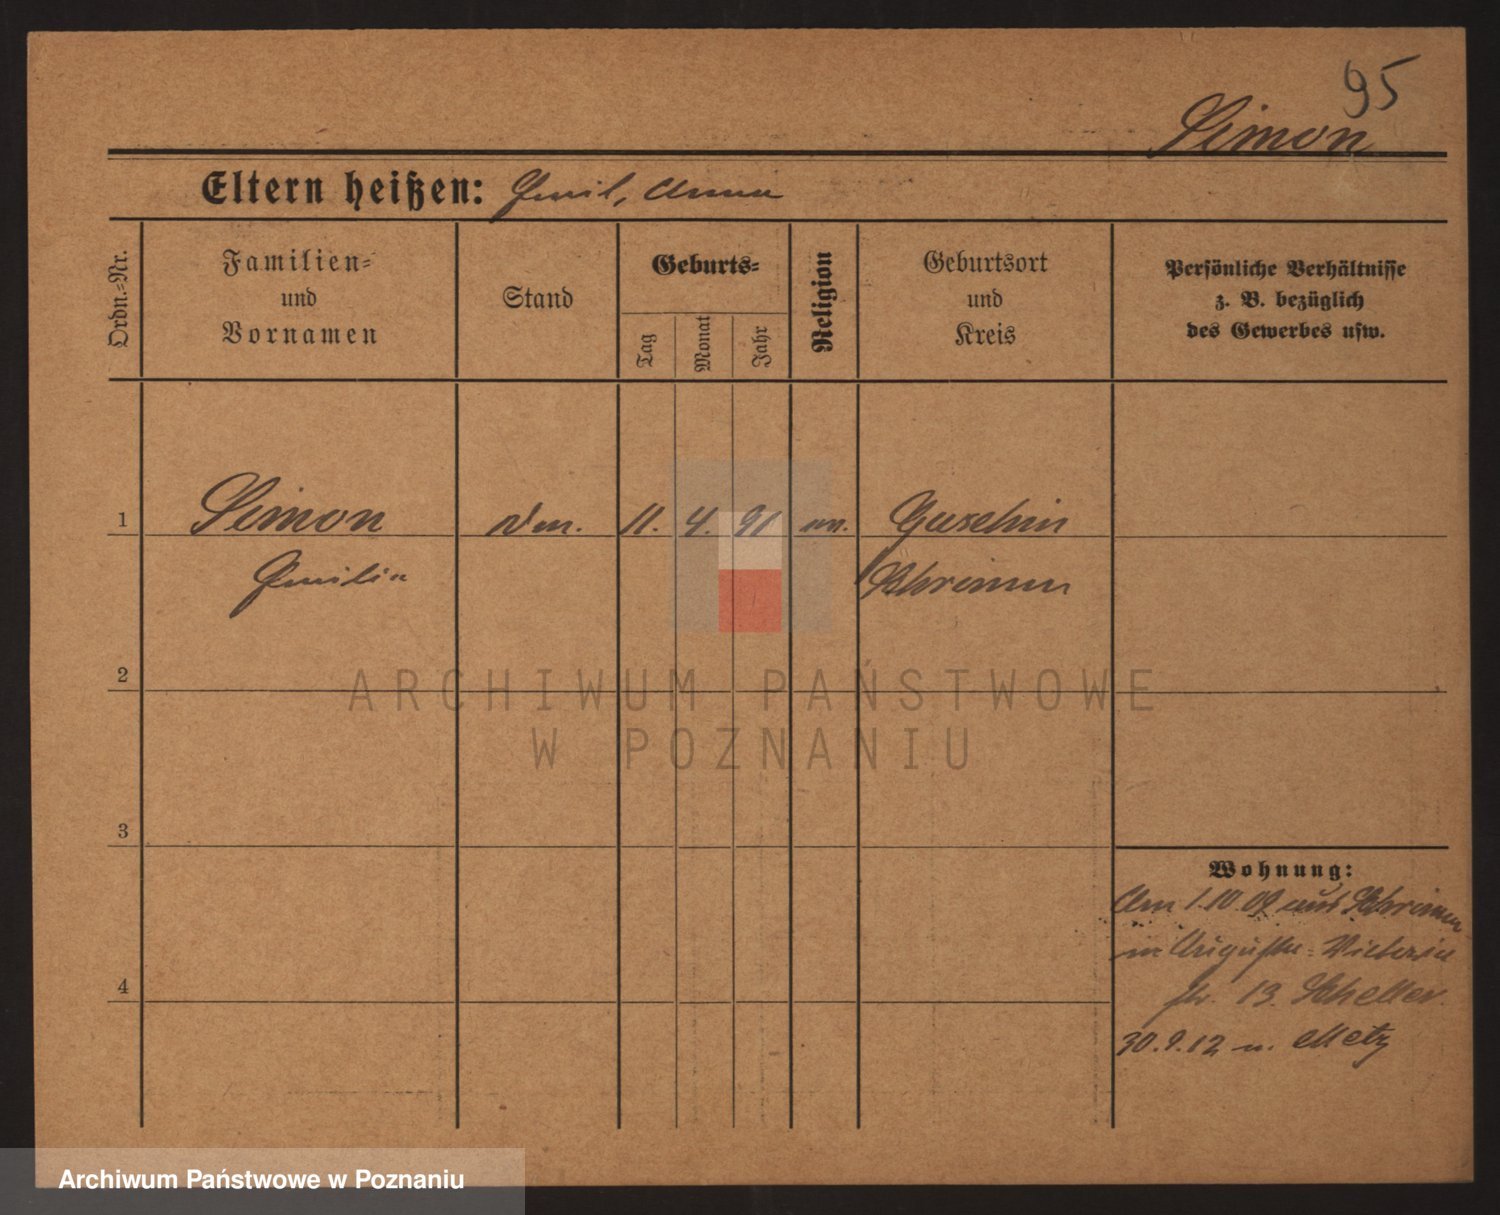 95
Simon
Eltern heißen: Emil, Anna
Ordn.-Nr.
Familien-
und
Vornamen
Stand
Geburts-
Tag
Monat
Jahr
Religion
Geburtsort
und
Kreis
Persönliche Verhältnisse
z. B. bezüglich
des Gewerbes usw.
1 Simon 11. 4. 91
Emilie Schrimm
2
ARCHIWUM PAŃSTWOWE
W POZNANIU
3
Wohnung:
Am 1.10.09 aus Schrimm
n. Auguste-Victoria
str. 13. Scheller.
4
30.9.12 n. Metz
Archiwum Państwowe w Poznaniu